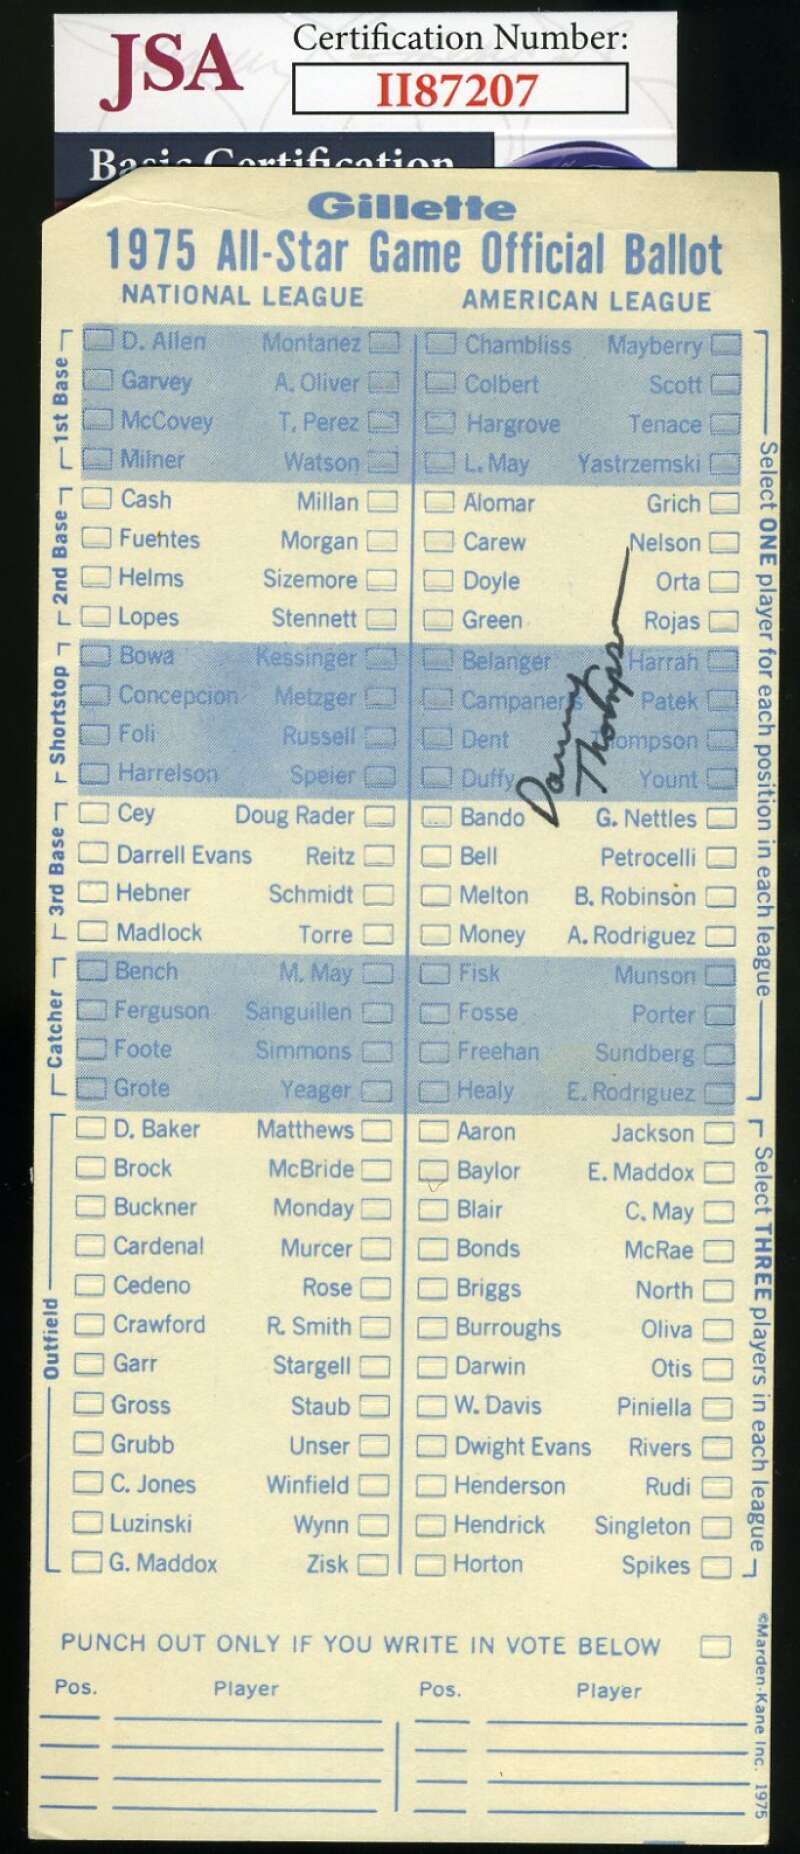 JSA
Certification Number:
II87207
Basic Certification
Gillette
1975 All-Star Game Official Ballot
NATIONAL LEAGUE AMERICAN LEAGUE
1st Base
D. Allen Montanez Chambliss Mayberry
Garvey A. Oliver Colbert Scott
McCovey T. Perez Hargrove Tenace
Milner Watson L. May Yastrzemski
2nd Base
Cash Millan Alomar Grich
Fuentes Morgan Carew Nelson
Helms Sizemore Doyle Orta
Lopes Stennett Green Rojas
Shortstop
Bowa Kessinger Belanger Harrah
Concepcion Metzger Campaneris Patek
Foli Russell Dent Thompson
Harrelson Speier Duffy Yount
Danny
Thompson
3rd Base
Cey Doug Rader Bando G. Nettles
Darrell Evans Reitz Bell Petrocelli
Hebner Schmidt Melton B. Robinson
Madlock Torre Money A. Rodriguez
Catcher
Bench M. May Fisk Munson
Ferguson Sanguillen Fosse Porter
Foote Simmons Freehan Sundberg
Grote Yeager Healy E. Rodriguez
Select ONE player for each position in each league
Outfield
D. Baker Matthews Aaron Jackson
Brock McBride Baylor E. Maddox
Buckner Monday Blair C. May
Cardenal Murcer Bonds McRae
Cedeno Rose Briggs North
Crawford R. Smith Burroughs Oliva
Garr Stargell Darwin Otis
Gross Staub W. Davis Piniella
Grubb Unser Dwight Evans Rivers
C. Jones Winfield Henderson Rudi
Luzinski Wynn Hendrick Singleton
G. Maddox Zisk Horton Spikes
Select THREE players in each league
PUNCH OUT ONLY IF YOU WRITE IN VOTE BELOW
Pos. Player Pos. Player
©Marden-Kane Inc. 1975